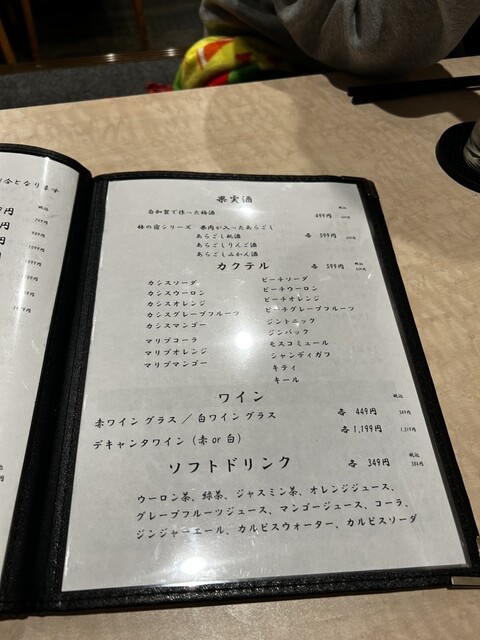 果実酒
自加製で作った梅酒 499円 税込
梅の宿シリーズ 果肉が入ったあらごし
あらごし桃酒 各 599円 税込
あらごしりんご酒
あらごしみかん酒
カクテル 各 599円 税込
カシスソーダ
カシスウーロン
カシスオレンジ
カシスグレープフルーツ
カシスマンゴー
マリブコーラ
マリブオレンジ
マリブマンゴー
ピーチソーダ
ピーチウーロン
ピーチオレンジ
ピーチグレープフルーツ
ジントニック
ジンバック
モスコミュール
シャンディガフ
キティ
キール
ワイン 税込
赤ワイン グラス / 白ワイン グラス 各 449円
デキャンタワイン (赤 or 白) 各 1,199円
ソフトドリンク 各 349円 税込
ウーロン茶、緑茶、ジャスミン茶、オレンジジュース、
グレープフルーツジュース、マンゴージュース、コーラ、
ジンジャーエール、カルピスウォーター、カルピスソーダ